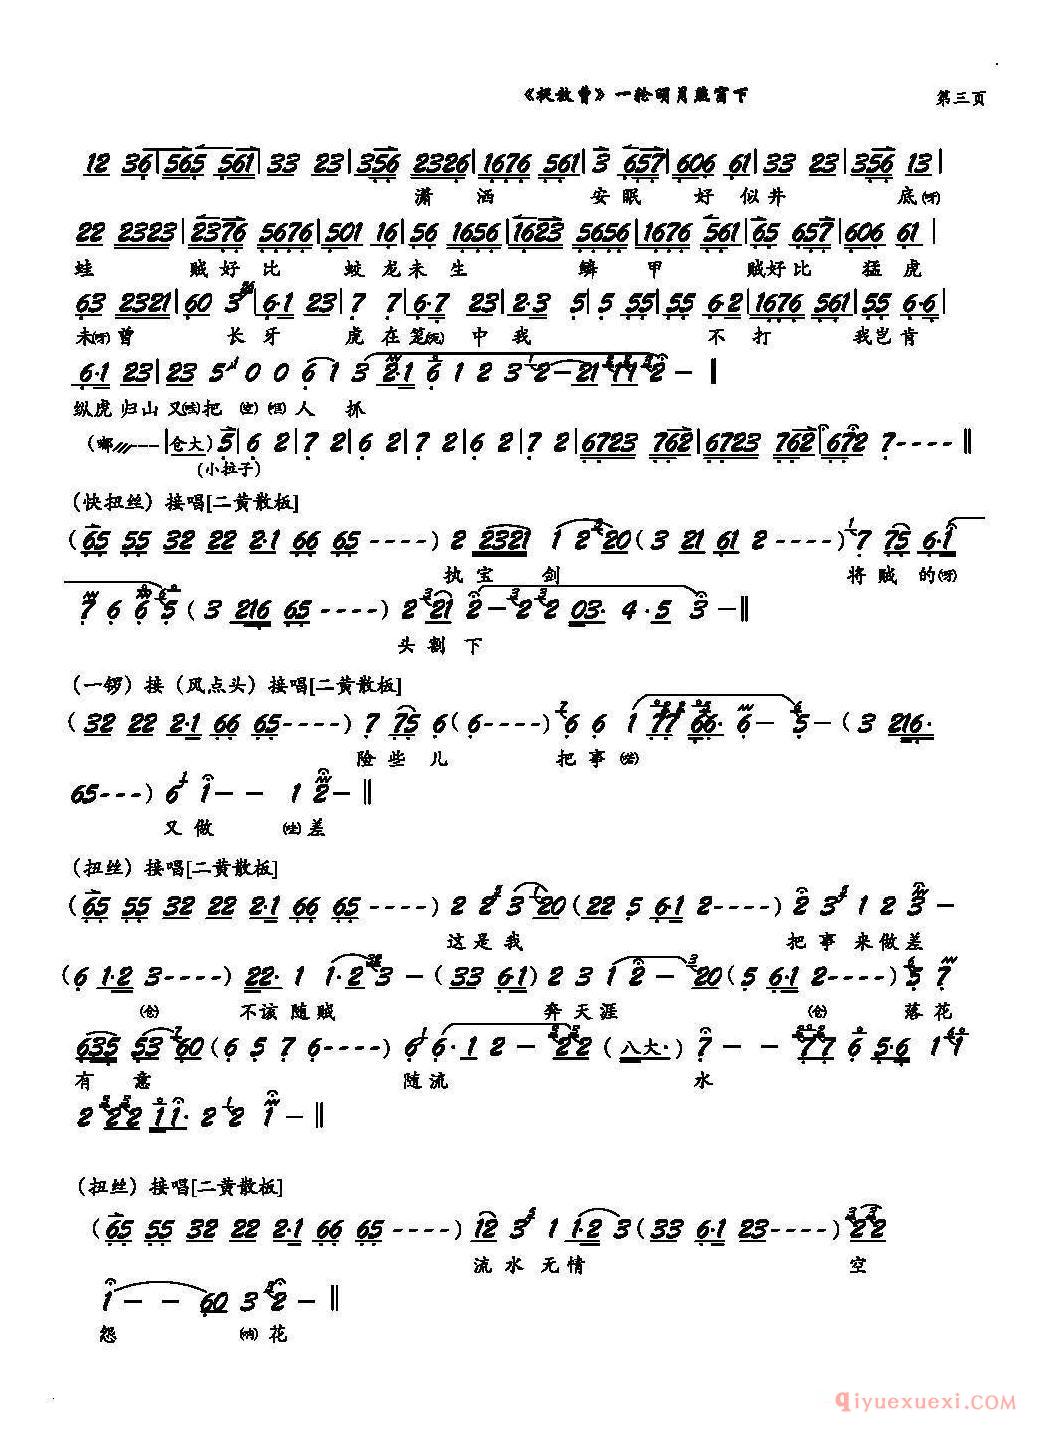 《捉放曹》一轮明月照窗下 第三页
12 36|565 561|33 23|356 2326|1676 561|3 657|606 61|33 23|356 13|
潇 洒 安 眠 好 似 井 底(呀)
22 2323|2376 5676|501 16|56 1656|1623 5656|1676 561|65 657|606 61|
蛙 贼 好 比 蛟 龙 未 生 鳞 甲 贼 好 比 猛 虎
63 2321|60 3|6·1 23|7 7|6·7 23|2·3 5|5 55|55 6·2|1676 561|55 6·6|
未(呀)曾 长 牙 虎 在 笼 中 我 不 打 我 岂 肯
6·1 23|23 5 0 0 6 1 3 2·1 6 1 2 3 2— 21 11 2—|
纵虎 归山 又 把 人 抓
(嘟---|仓大)5|6 2|7 2|6 2|7 2|6723 762|6723 762|672 7----‖
(小拉子)
(快扭丝)接唱[二黄散板]
(65 55 32 22 2·1 66 65 ----)2 2321 1 2 20(3 21 61 2----)7 75 6·1
执 宝 剑 将 贼 的(呀)
7 6 6 5(3 216 65 ----)2 21 2— 2 2 03· 4·5 3—‖
头 割 下
(一锣)接(风点头)接唱[二黄散板]
(32 22 2·1 66 65----)7 75 6(6----)6 6 1 77 66· 6— 5—(3 216·
险 些 儿 把 事
65---)6 1—— 1 2—‖
又 做 差
(扭丝)接唱[二黄散板]
(65 55 32 22 2·1 66 65 ----)2 2 3 20(22 5 6·1 2----)2 3 1 2 3—
这 是 我 把 事 来 做 差
(6 1·2 3----)22· 1 1·2 3—(33 6·1)2 3 1 2— 20(5 6·1 2----)5 7
(仓) 不 该 随 贼 奔 天 涯 (仓) 落 花
635 53 60(6 5 7 6----)6 6·1 2— 22(八大·)7— 77 6 5·6 1 1
有 意 随 流 水
2 22 11· 2 2 1—‖
(扭丝)接唱[二黄散板]
(65 55 32 22 2·1 66 65 ----)12 3 1 1·2 3(33 6·1 23----)22
流 水 无 情 空
1—— 60 3 2—‖
怨 花
qiyuexuexi.COM